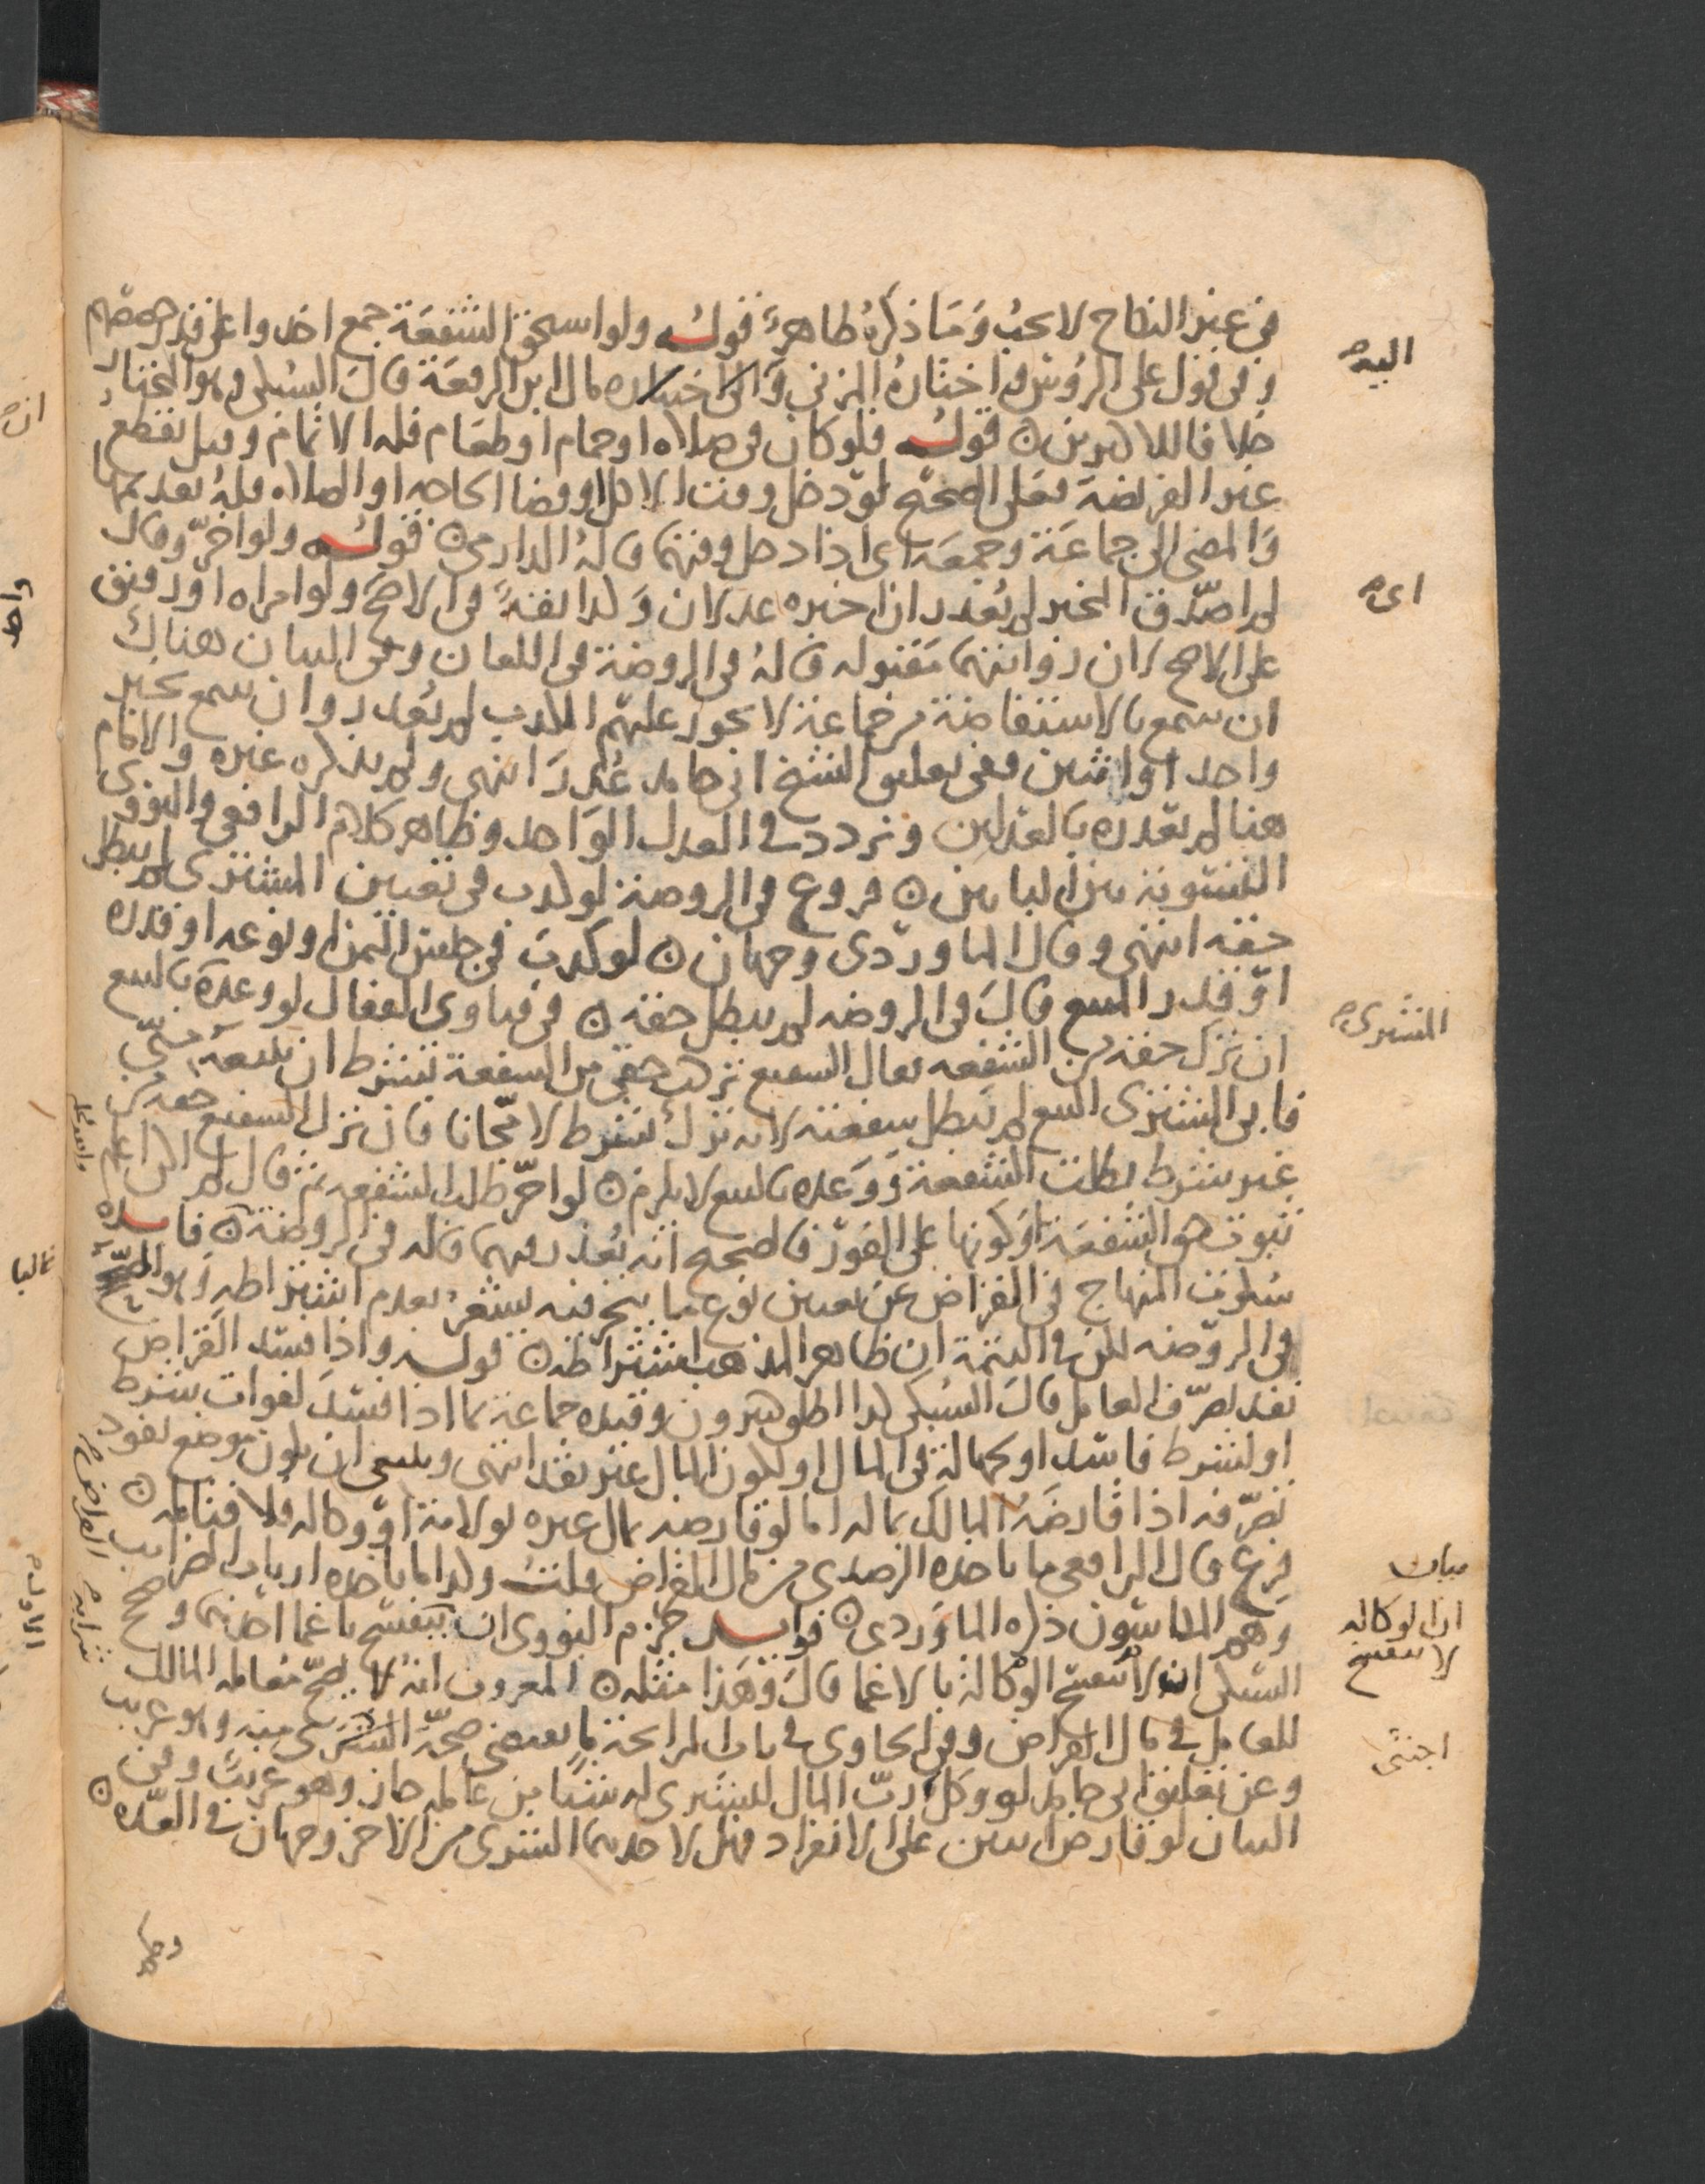 في غير النكاح لا يجب وما ذكره ظاهر قوله ولو استحق الشفعة جمع اخذوا على قدر حصصهم
وفي قول على الرؤس واختاره المزني وال اختياره مال ابن الرفعة قال السبكي وهو المختار
خلافا للاكثرين قوله فلو كان في صلاة او حمام او طعام فله الاتمام وقيل يقطع
غير الفريضة فعلى الصحيح لو دخل وقت الاكل او قضا الحاجة او الصلاة فله تقديمها
والمضي الى جماعة وجمعة اي اذا دخل وقتها قاله الدارمي قوله ولو اخر وقال
لم اصدق المخبر لم يعذر ان اخبره عدلان وكذا ثقة في الاصح ولو امراة او رقيق
على الاصح لان روايتهما مقبولة قاله في الروضة في اللعان وفي البيان هناك
ان سمع بالاستفاضة من جماعة لا يجوز عليهم الكذب لم يعذر وان سمع بخبر
واحد او اثنين ففي تعليق الشيخ ابي حامد عذر انتهى ولم يذكره غيره والامام
هنا لم يعذره بالعدلين وتردد في العدل الواحد وظاهر كلام الرافعي والنووي
التسوية بين البابين فروع في الروضة لو كذب في تعيين المشتري لم يبطل
حقه انتهى وقال الماوردي وجهان لو كذب في جنس الثمن او نوعه او قدره
او قدر المبيع قال في الروضة لم يبطل حقه في فتاوى القفال لو وعده بالبيع
ان ترك حقه من الشفعة فقال الشفيع تركت حقي من الشفعة بشرط ان تبيعه مني
فابى المشتري البيع لم تبطل شفعته لانه ترك بشرط لا مجانا فان ترك الشفيع حقه من
غير شرط بطلت الشفعة ووعده بالبيع لا يلزم لو اخر طلب الشفعة ثم قال لم اكن اعلم
ثبوت حق الشفعة او كونها على الفور فالصحيح انه يعذر فيهما قاله في الروضة فايدة
سكوت المنهاج في القراض عن تعيين نوع ما يتجر فيه يشعر بعدم اشتراطه وهو المصحح
في الروضة لكن في التتمة ان ظاهر المذهب اشتراطه قوله واذا فسد القراض
نفذ تصرف العامل قال السبكي كذا اطلق كثيرون وقيده جماعة بما اذا فسد لفوات شرط
او لشرط فاسد او لجهالة في المال او لكون المال غير نقد انتهى وينبغي ان يكون موضع نفوذ
تصرفه اذا قارضه المالك بماله اما لو قارضه بمال غيره بولاية او وكالة فلا فتامله
فرع قال الرافعي ما ياخذه الرصدي من مال القراض قلت وكذا ما ياخذه ارباب الضرايب
وهم المكاسون ذكره الماوردي فوايد جزم النووي انه ينفسخ باغما احدهما وصحح
السبكي ان لا تنفسخ الوكالة بالاغما قال وهذا مثله المعروف انه لا يصح معاملة المالك
للعامل في مال القراض وفي الحاوي في باب المرابحة ما يقتضي صحة الشرى منه وهو غريب
وعن تعليق ابي حامد لو وكل رب المال للشرى له شيئا من عامله جاز وهو غريب وفي
البيان لو قارض اثنين على الانفراد فهل لاحدهما الشرى من الاخر وجهان في العدة
اليه
اي
المشتري
بيان
ان الوكالة
لا تنفسخ
اجنبي
القراض
غالبا
واحد